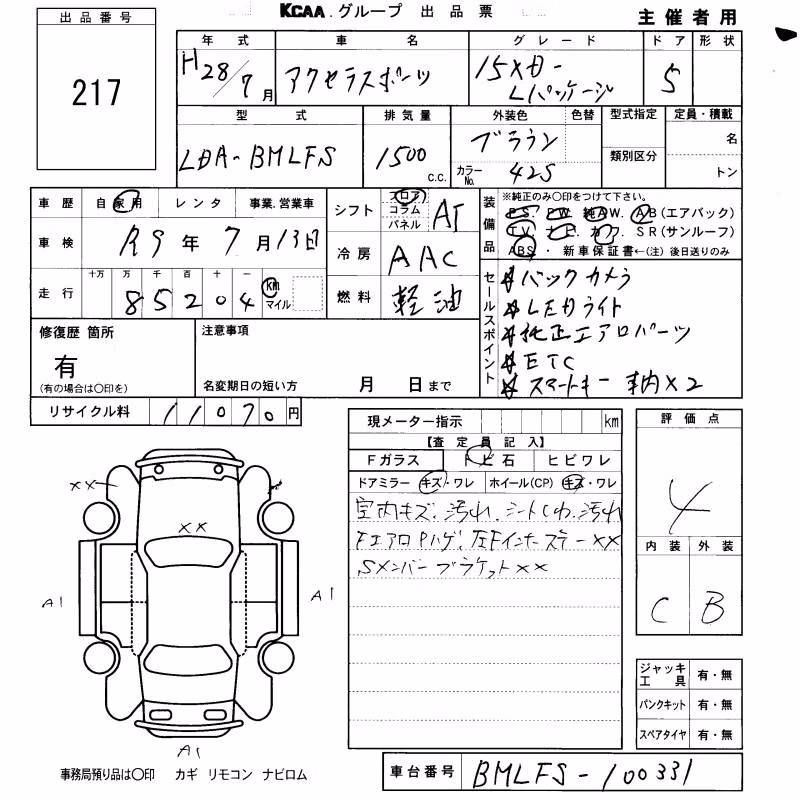 KCAA.グループ 出品票
主催者用
出品番号
217
年式 車名 グレード ドア 形状
H28/7月 アクセラスポーツ 15XD-Lパッケージ 5
型式 排気量 外装色 色替 型式指定 定員・積載
LDA-BMLFS 1500 c.c. ブラウン 類別区分 名
カラーNo. 42S トン
車歴 自家用 レンタ 事業.営業車
車検 R9年7月13日
走行 十万 万 千 百 十 一 km マイル
85204
シフト フロア コラム パネル AT
冷房 AAC
燃料 軽油
装備品 ※純正のみ○印をつけて下さい。
PS. PW. 純AW. AB(エアバック)
TV. ナビ. カワ. SR(サンルーフ)
ABS. ・ 新車保証書←(注) 後日送りのみ
セールスポイント
バックカメラ
LEDライト
純正エアロパーツ
ETC
スマートキー 車内×2
修復歴 箇所
有
(有の場合は○印を)
注意事項
名変期日の短い方 月 日まで
リサイクル料 11070円
現メーター指示 km
【査定員記入】
Fガラス 飛石 ヒビワレ
ドアミラー キズ・ワレ ホイール(CP) キズ・ワレ
室内キズ、汚れ、シートしわ、汚れ
FエアロPハゲ、左Fインナーステー××
Sメンバーブラケット××
評価点
4
内装 外装
C B
ジャッキ工具 有・無
パンクキット 有・無
スペアタイヤ 有・無
××
××
A1
A1
A1
事務局預り品は○印 カギ リモコン ナビロム
車台番号 BMLFS-100331